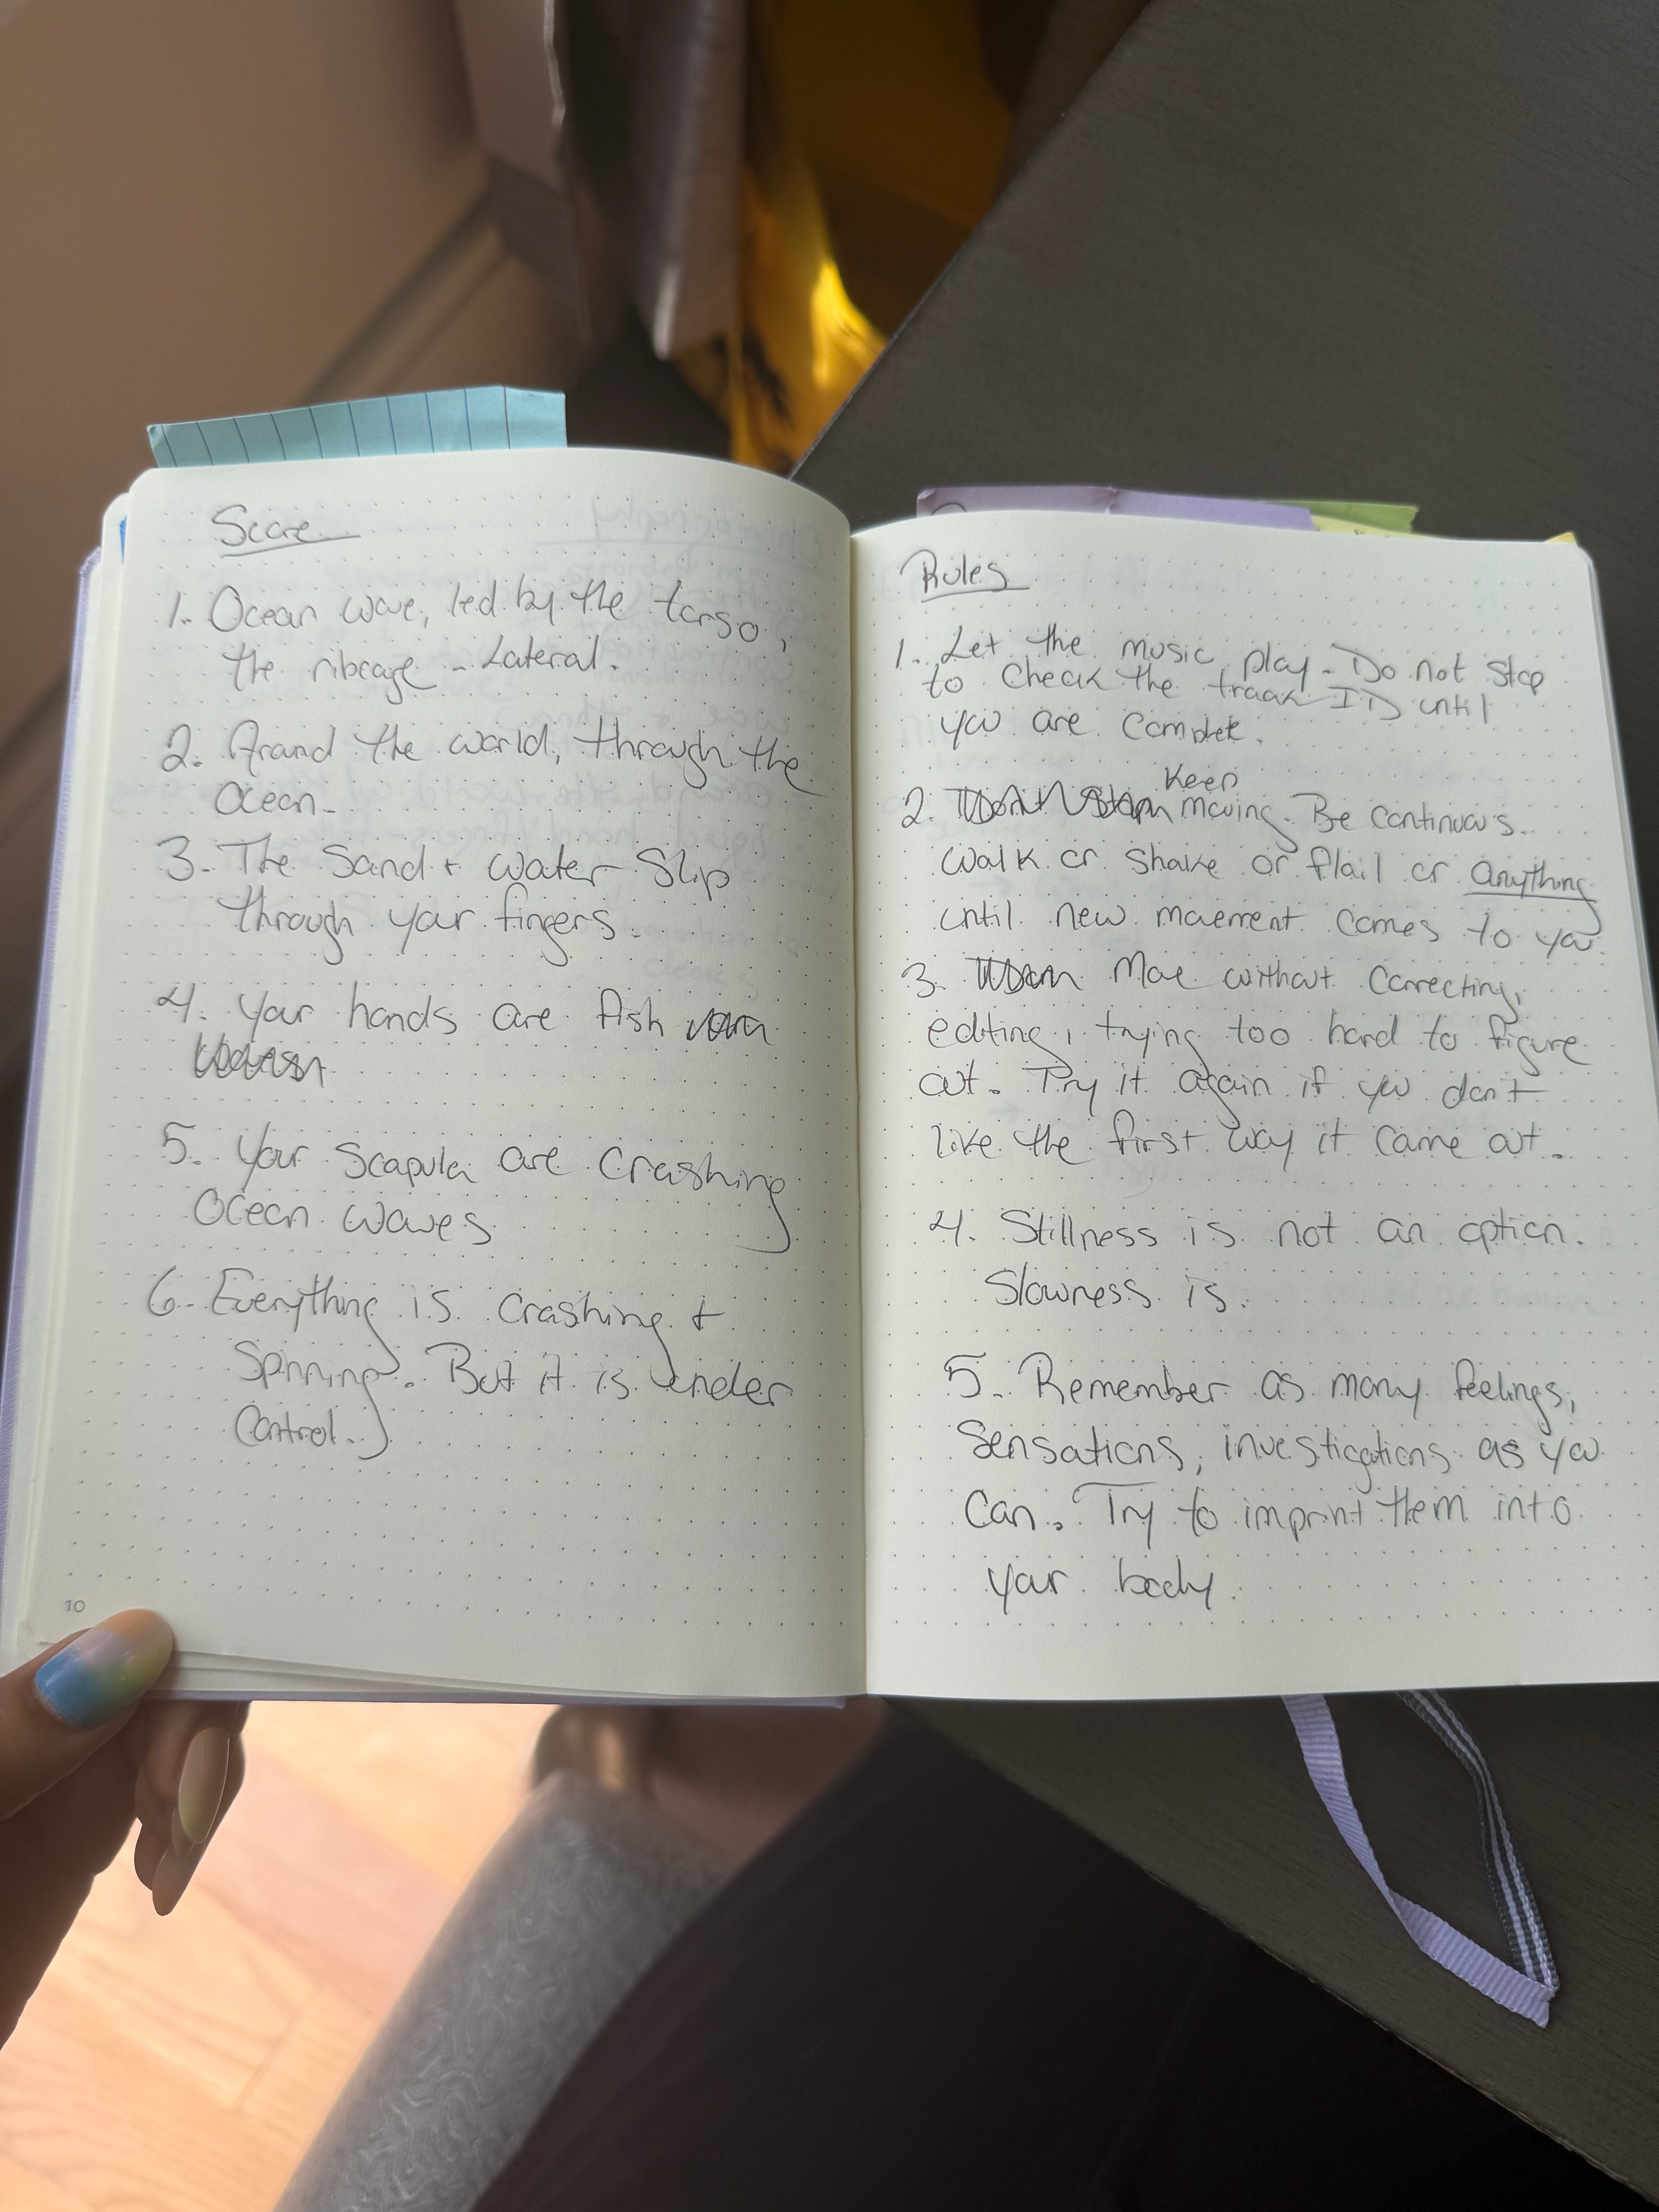 Score
1. Ocean wave, led by the torso,
the ribcage - Lateral.
2. Around the world, through the
Ocean.
3. The Sand + water slip
through your fingers.
4. Your hands are fish
5. Your Scapula are crashing
Ocean waves
6. Everything is crashing +
Spinning. But it is under
Control.
10
Rules
1. Let the music play. Do not stop
to check the track ID until
you are complete.
Keep
2. moving. Be continuous.
Walk or shake or flail or anything
until new movement comes to you.
3. Move without correcting,
editing, trying too hard to figure
out. Try it again if you don't
like the first way it came out.
4. Stillness is not an option.
Slowness is.
5. Remember as many feelings,
Sensations, investigations as you
Can. Try to imprint them into
your body.